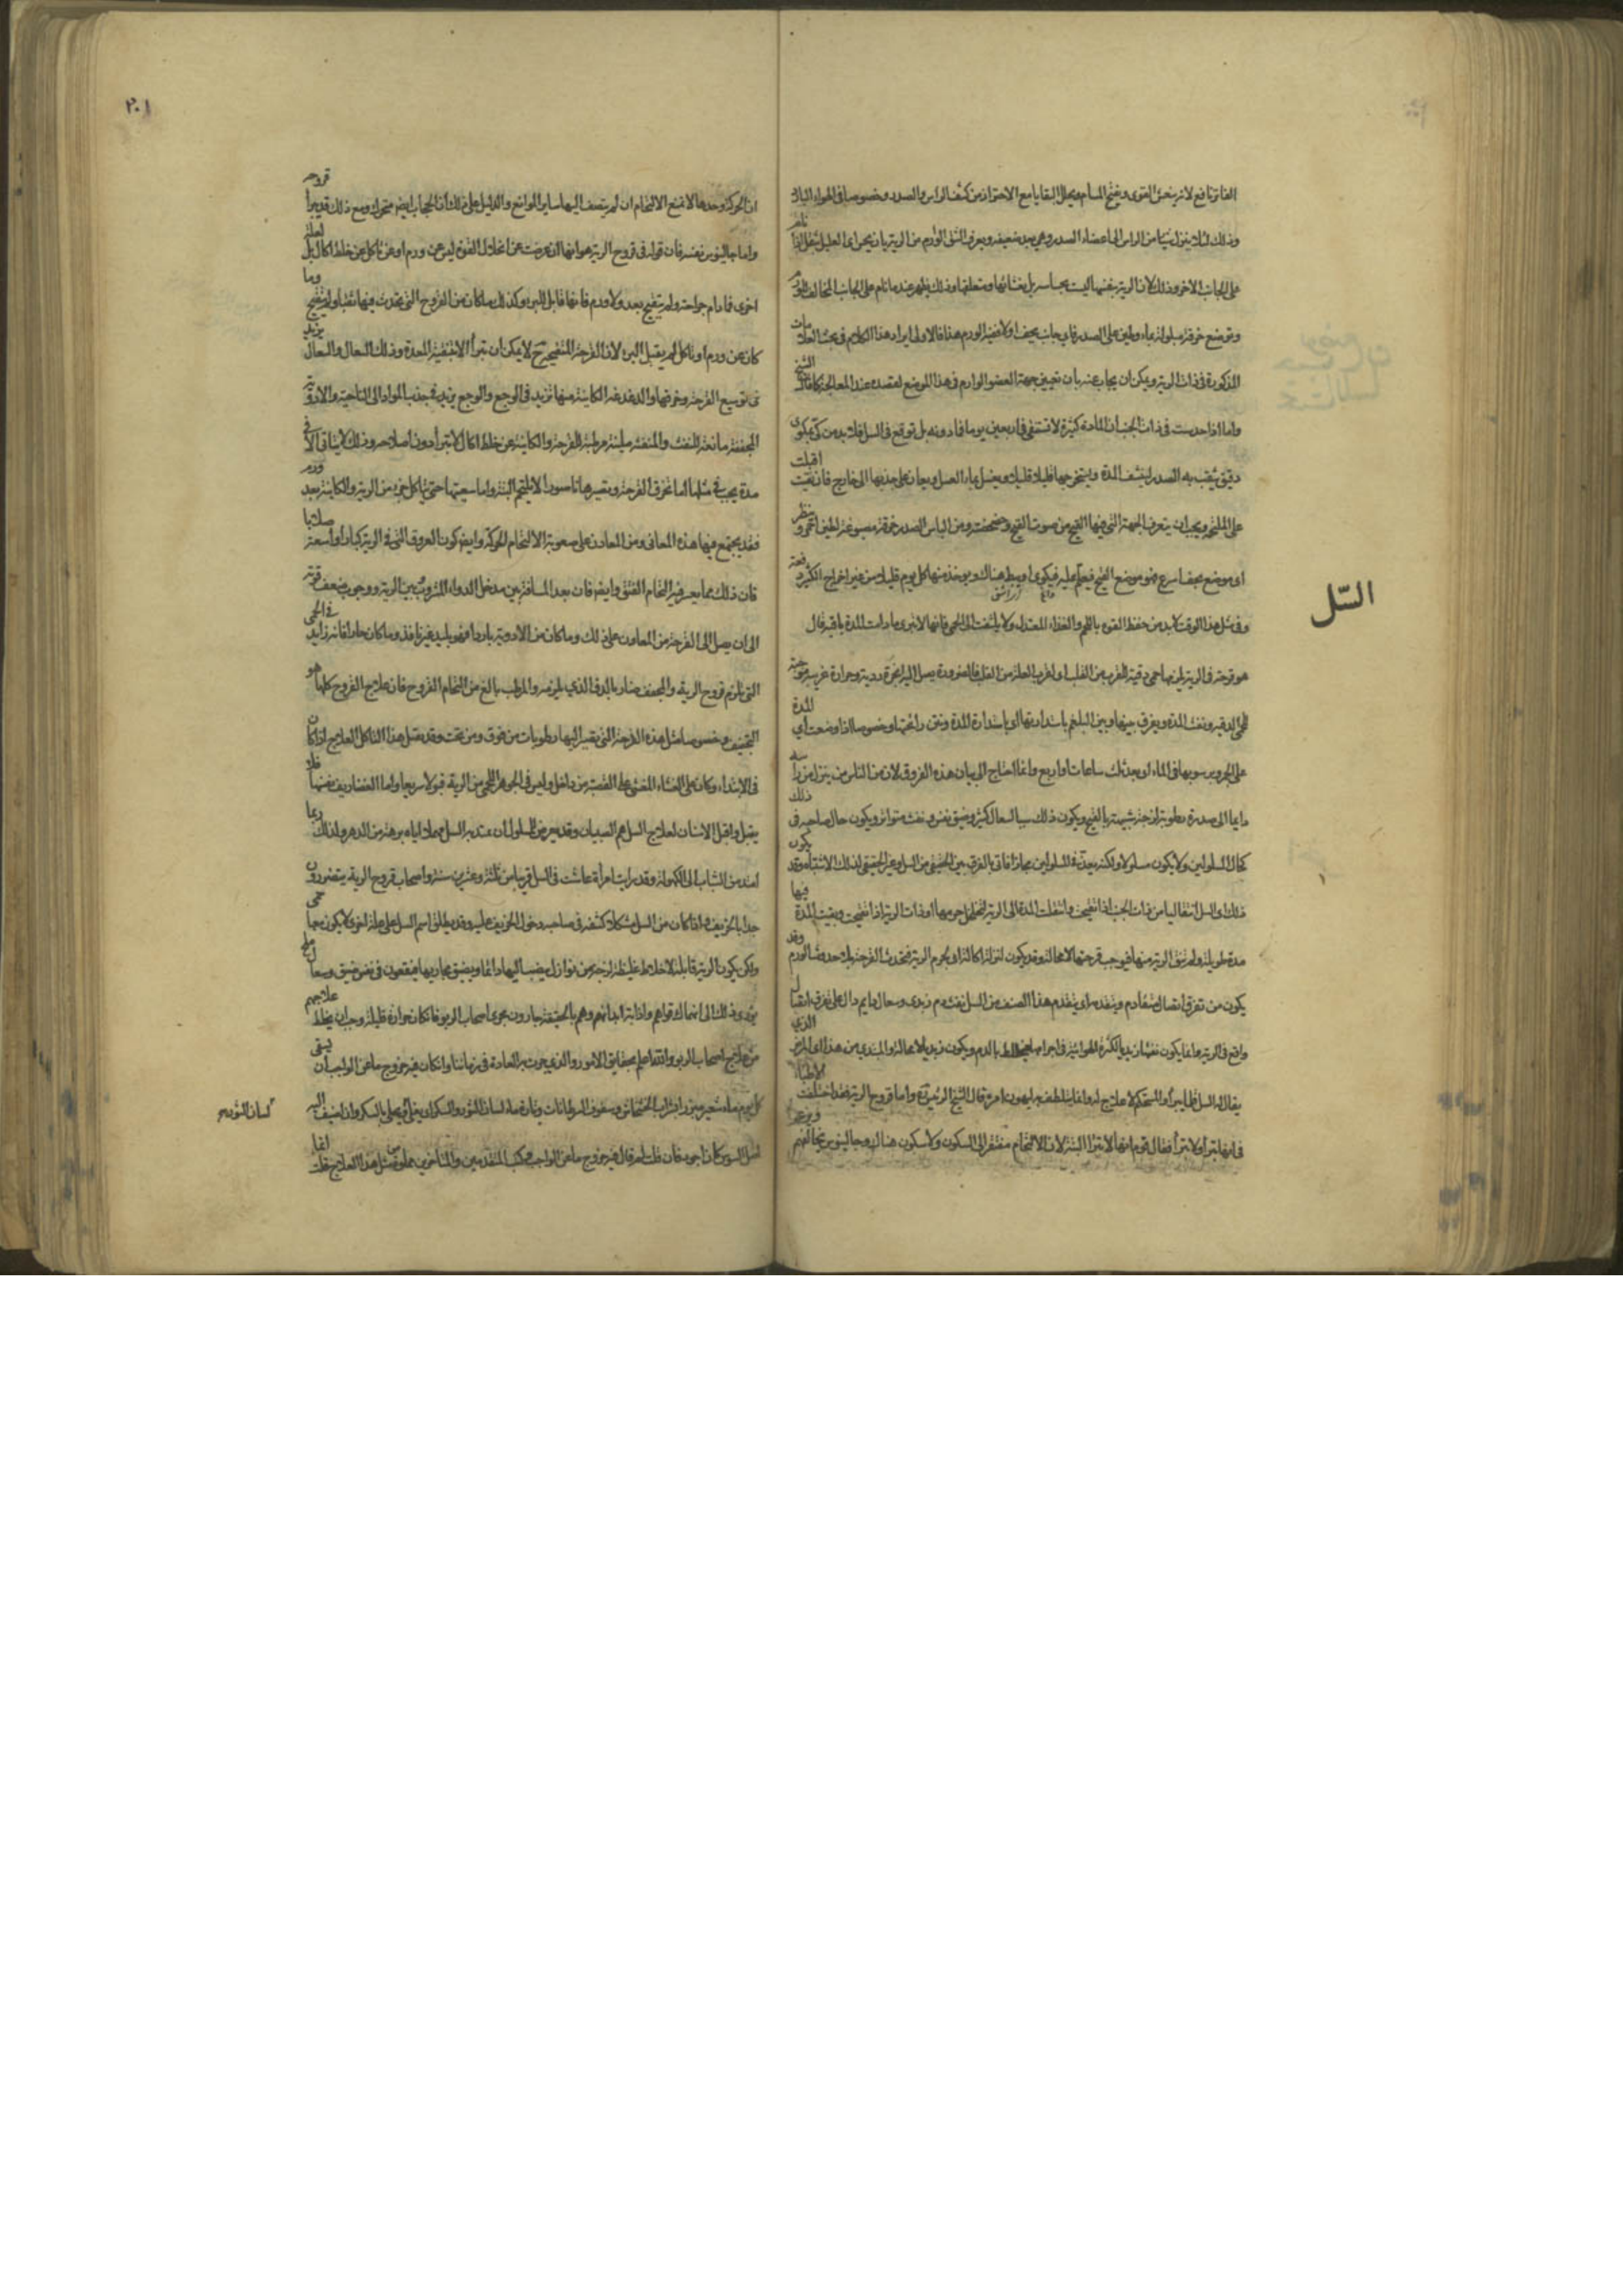 الفاتر نافع لانه ينعش القوى ويفتح المسام ويحلل البقايا مع الاحتراز من كشف الراس والصدر وخصوصا في الهواء البارد
وذلك لئلا ينزل شيئا من الراس الى اعضاء الصدر وهي بعد ضعيفة ويعرف الشق الوارم من الرية بان يحس العليل بثقل اذا نام
على الجانب الاخر وذلك لان الرية نفسها ليست بحساسة بل بغشائها ومتعلقها وذلك يظهر عندما نام على الجانب المخالف للورم
وتوضع خرقة مبلولة بماء وطين على الصدر فاي جانب يجف اولا ففيه الورم هذا فالاولى ايراد هذا الكلام في بحث العلامات
المذكورة في ذات الرية ويمكن ان يجاب عنه بان تعيين جهة العضو الوارم في هذا الموضع لقصده عند المعالجة كما قال الشيخ
واما اذا حدست في ذات الجنب ان المادة كثيرة لا تستنقى في اربعين يوما فما دونه بل توقع في السل فلا بد من كي بمكوى
دقيق يثقب به الصدر لينشف المدة ويستخرجها قليلا قليلا ويغسل بماء العسل ويعان على جذبها الى خارج فان نقيت اقبلت
على الملحم ويجب ان يتعرف الجهة التي فيها القيح من صوت القيح وخضخضته ومن الباس الصدر خرقة مصبوغة بطين احمر وينظر
اي موضع يجف اسرع فهو موضع القيح فيعلم عليه فيكوى او يبط هناك ويوخذ منها كل يوم قليلا من غير اخراج الكثير دفعة
وفي مثل هذا الوقت لا بد من حفظ القوة باللحم والغذاء المعتدل ولا يلتفت الى الحمى فانها لا تبرى ما دامت المدة باقية قال
السّل
هو قرحة في الرية يلزمها حمى دقية للقرب من القلب
للحمى الدقية ونفث المدة ويفرق بينها وبين البلغم باستدارتها اي باستدارة المدة ونتن رائحتها وخصوصا اذا وضعت اي المدة
على الجمر ورسوبها في الماء او بعد ثلث ساعات او اربع وانما احتاج الى بيان هذه الفروق لان من الناس من ينزل من راسه
دايما الى صدره رطوبة لزجة شبيهة بالقيح ويكون ذلك سببا لسعال كثير وضيق نفس ونفث متواتر ويكون حال صاحبه في ذلك
كحال المسلولين ولا يكون مسلولا ولكنه يعد في المسلولين مجازا فاتى بالفرق بين الحقيقي من السل وغير الحقيقي لذلك الاشتباه وقد يكون
ذلك اي السل انتقاليا من ذات الجنب اذا تقيحت وانتقلت المدة الى الرية لتخلخل جرمها او ذات الرية اذا تقيحت وبقيت المدة فيها
مدة طويلة ولم تنق الرية منها فيوجب قرحتها لا محالة وقد يكون لنزلة اكالة اي لجرم الرية فتحدث القرحة بلا حدوث الورم وقد
يكون من تفرق اتصال متقادم ويتقدمه اي يتقدم هذا الصنف من السل نفث دم زبدي وسعال دايم دال على تفرق اتصال
واقع في الرية وانما يكون نفثها زبديا لكثرة الهوائية في اجرامها فيختلط بالدم ويكون زبديا لا محالة والمبتدي من هذا اي المرض الذي
يقال له السل قلما يبرأ والمستحكم لا علاج له وانما يتلطف به ليهون امره قال الشيخ الرئيس واما قروح الرية فقد اختلفت الاطباء
في انها تبرأ او لا تبرأ فقال قوم انها لا تبرأ البتة لان الالتحام مفتقر الى السكون ولا سكون هناك وجالينوس يخالفهم ويزعم
٢٠١
ان الحركة وحدها لا تمنع الالتحام ان لم ينضف اليها ساير الموانع والدليل على ذلك ان الحجاب ايضا متحرك ومع ذلك قد يبرأ قروحه
واما جالينوس نفسه فان قوله في قروح الرية هو انها ان عرضت عن انحلال الفرد ليس عن ورم او عن تاكل عن خلط اكال بل لعلة
اخرى فما دام جراحة ولم يتقيح بعد ولا ورم فانها قابل للبرء وكذلك ما كان من القروح التي تحدث فيها نفثا ولم يتقيح وما
كان عن ورم او تاكل لم يقبل البرء لان القرحة المتقيحة ح لا يمكن ان تبرأ الا بتنقية المدة وذلك بالسعال والسعال يزيد
في توسيع القرحة وخرقها والدغدغة الكاينة منها تزيد في الوجع والوجع يزيد في جذب المواد الى الناحية والادوية
المجففة مانعة للنفث والمنفثة ملينة مرطبة للقرحة والكاينة عن خلط اكال لا تبرأ دون اصلاحه وذلك لا يتاتى الا في
مدة يجب في مثلها اما تخرق القرحة وتصيرها ناسورا لا يلتحم البتة واما سعيتها حتى يتاكل جزء من الرية والكاينة بعد ورم
فقد يجتمع فيها هذه المعاني ومن المعاون على صعوبة الالتحام الحركة وايضا كون العروق التي في الرية كبارا واسعة صلابا
فان ذلك مما يعسر فيه التحام الفتق وايضا فان بعد المسافة بين مدخل الدواء المشروب وبين الرية ووجوب ضعف قوته
الى ان يصل الى القرحة من المعاون على ذلك وما كان من الادوية باردا فهو بليد غير نافذ وما كان حارا فانه زايد في الحمى
التي تلزم قروح الرية والمجفف ضار بالدق الذي يلزمه والمرطب بالغ من التحام القروح فان علاج القروح كلها هو
التجفيف وخصوصا مثل هذه القرحة التي تصير اليها رطوبات من فوق ومن تحت وقد يقبل هذا التاكل العلاج اذا كان
في الابتداء وكان على الغشاء المغشي على القصبة من داخل وليس في الجوهر اللحمي من الرية قبولا سريعا واما الغضاريف نفسها فلا
يقبل واقبل الاسنان لعلاج السل هم الصبيان
امتد من الشباب الى الكهولة وقد رايت امرأة عاشت في السل قريبا من ثلث وعشرين سنة واصحاب قروح الرية يتضررون
جدا بالخريف واذا كان من السل مشكلا كشفه في صاحبه دخول الخريف عليه وقد يطلق اسم السل على علة اخرى لا يكون معها حمى
ولكن يكون الرية قابلة لاخلاط غليظة لزجة من نوازل ينصب اليها دايما ويضيق مجاريها فيقعون في نفس ضيق وسعال ملح
يؤدي ذلك الى انهاك قواهم واذابة ابدانهم وهم بالحقيقة جارون مجرى اصحاب الربو فان كان حرارة قليلة وجب ان يخلط علاجهم
من علاج اصحاب الربو والله اعلم بحقايق الامور والذي جرت به العادة في زماننا وان كان فيه خروج ما عن الواجب ان يسقى
كل يوم ماء شعير مبزر او شراب الخشخاش وسفوف السرطانات وتارة ماء لسان الثور
لسان الثور